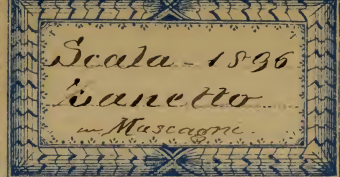 Scala - 1896
Zanetto
Mascagni.